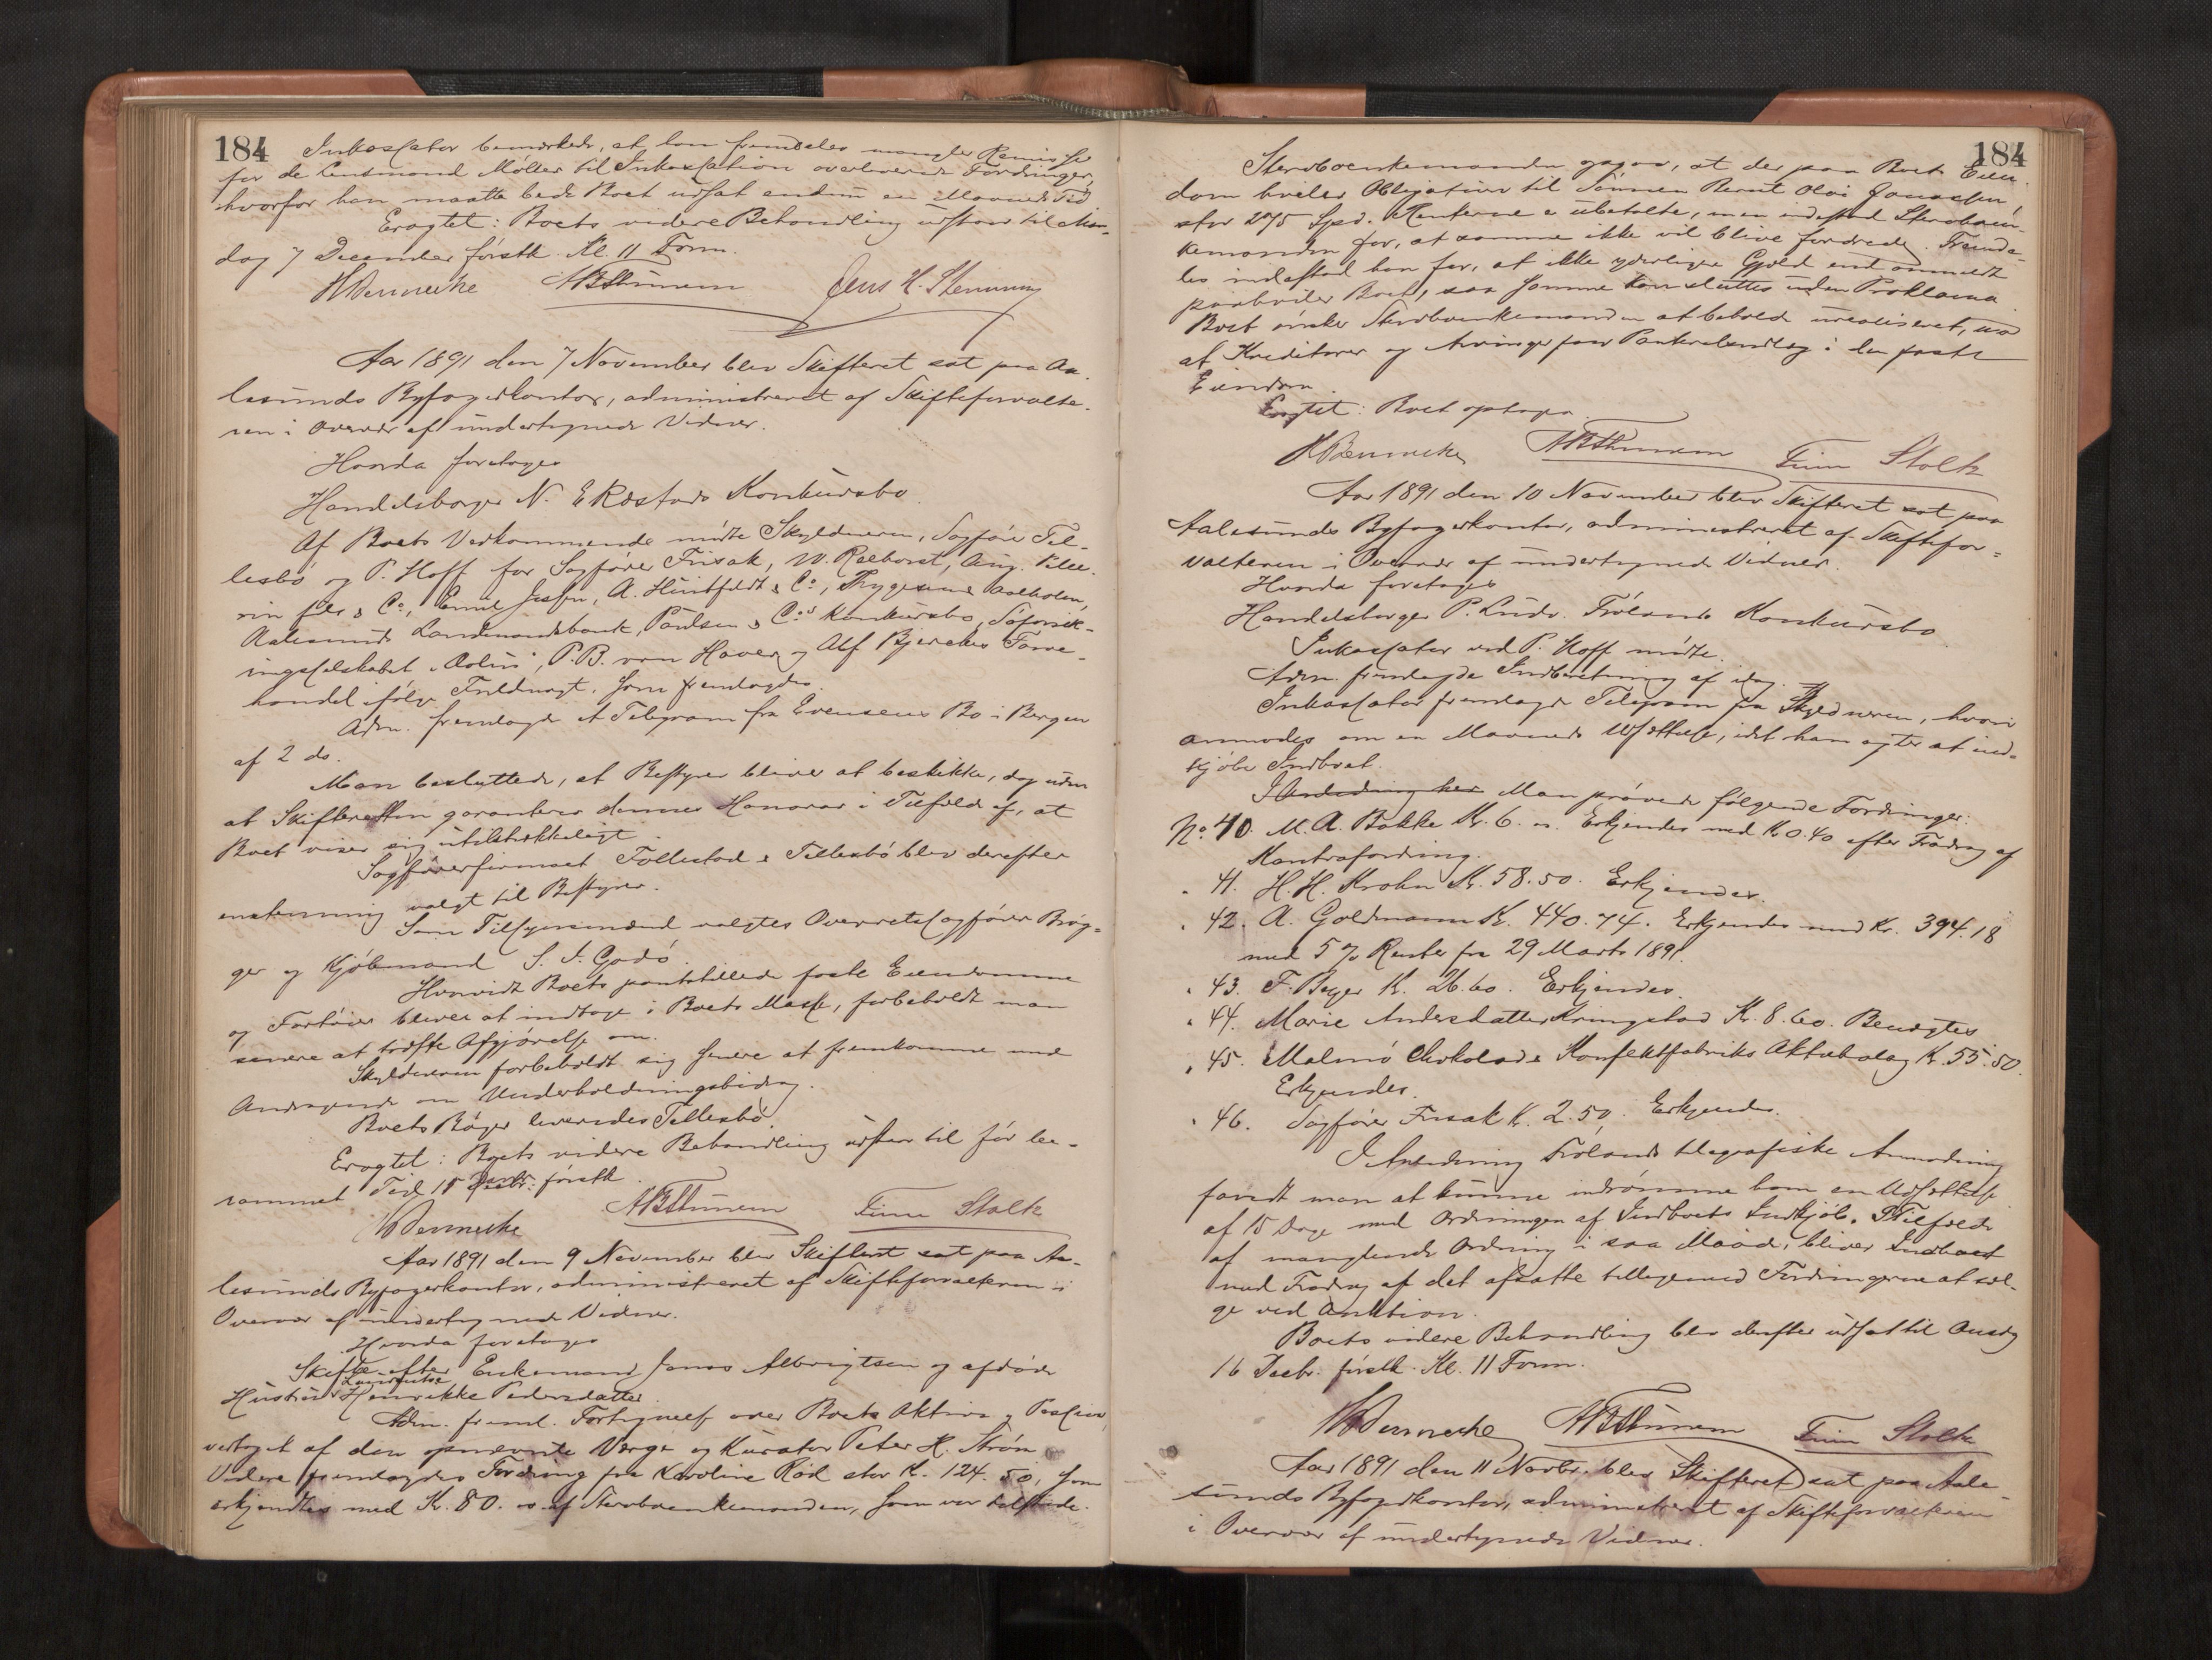 184
Inkassator bemærkede, at han fremdeles mangler Remisser
for de Lensmand Møller til Inkassation overleverede Fordringer,
hvorfor han maatte bede Boet udsat endnu en Maaneds Tid
Eragtet: Boets videre Behandling udstaar til Man-
dag 7 December førstk. Kl. 11 Form.
HBennecke Jens H. Stenning
Aar 1891 den 7 November blev Skifteret sat paa Aa-
lesunds Byfogedkontor, administreret af Skifteforvalte-
ren i Overvær af undertegnede Vidner.
Hvorda foretoges
Handelsborger N. E Røstads Konkursbo.
Af Boets Vedkommende mødte Skyldneren, Sagfører Til-
lesbø og P. Hoff for Sagfører Frisak, W. Raeborst, Aug. Pelle-
rin fils & Co, Emil Jessen, A. Huitfeldt & Co, Thygesens Aalholm,
Aalesunds Landmandsbank, Paulsen & Co's Konkursbo, Søforsik-
ringsselskabet "Æolus", P.B. von Haven og Alf Bjerckes Farve-
handel ifølge Fuldmagt, som fremlagdes.
Adm. fremlagde et Telegram fra Evensens Bo i Bergen
af 2 ds.
Man besluttede, at Bestyrer bliver at beskikke, dog uden
at Skifteretten garanterer dennes Honorar i Tilfælde af, at
Boet viser sig utilstrækkeligt
Sagførerfirmaet Tollestad & Tillesbø blev derefter
enstemmig valgt til Bestyrer.
Som Tilsynsmænd valgtes Overretssagfører Brøg-
ger og Kjøbmand S. S. Godø.
Hvorvidt Boets pantstillede faste Eiendomme
og Fartøier bliver at indtage i Boets Masse, forbeholdt man
senere at træffe Afgjørelse om.
Skyldneren forbeholdt sig senere at fremkomme med
Andragende om Underholdningsbidrag.
Boets Bøger leveredes Tillesbø.
Eragtet: Boets videre Behandling udstaar til før be-
rammet Tid 15 Decbr: førstk.
HBennecke Finn Stoltz
Aar 1891 den 9 November blev Skifteret sat paa Aa-
lesunds Byfogedkontor, administreret af Skifteforvalteren i
Overvær af undertegnede Vidner.
Hvorda foretoges
Skifte efter Enkemand Jonas Albrigtsen og afdøde
Hustru Henrikke Pedersdatter
Adm. freml. Fortegnelse over Boets Aktiva & Passiva,
vedtaget af den opnævnte Værge og Kurator Peter H. Strøm
Videre fremlagdes Fordring fra Karoline Rød stor Kr. 124. 50, som
erkjendtes med Kr. 80. oo af Stervboenkemanden, som var tilstede.
184
Stervboenkemanden opgav, at der paa Boets Eien-
dom hviler Obligation til Sønnen Bernt Olai Jonassen,
stor 275 Spd. Renterne er ubetalte, men indestod Stervboen-
kemanden for, at samme ikke vil blive fordrede. Fremde-
les indestod han for, at ikke yderligere Gjæld end anmeldt
paahviler Boet, saa samme kan sluttes uden Proklama
Boet ønsker Stervboenkemanden at beholde urealiseret, mod
at Kreditorer og Arvinger faar Panteretsudlæg i den faste
Eiendom.
Eragtet: Boet optages.
HBennecke Finn Stoltz
Aar 1891 den 10 November blev Skifteret sat paa
Aalesunds Byfogedkontor, administreret af Skiftefor-
valteren i Overvær af undertegnede Vidner.
Hvorda foretoges
Handelsborger P. Ludv. Frølands Konkursbo
Inkassator ved P. Hoff mødte.
Adm. fremlagde Indberetning af idag.
Inkassator fremlagde Telegram fra Skyldneren, hvori
anmodes om en Maaneds Udsættelse, idet han agter at ind-
kjøbe Indboet.
I Anledning her Man prøvede følgende Fordringer:
No 40. M. A. Bakke Kr. 6. oo. Erkjendes med Kr 0.40 efter Fradrag af
Kontrafordring.
" 41. H. H. Krohn Kr. 58.50. Erkjendes.
" 42. A. Goldmann Kr. 440.74. Erkjendes med Kr. 394.18
med 5 % Renter fra 29 Marts 1891.
" 43. F. Beyer Kr. 26.60. Erkjendes.
" 44. Marie Andersdatter Kringstad Kr. 8.60. Benægtes
" 45. Malmø Chokolade Konfektfabriks Aktiebolag Kr. 55.50.
Erkjendes.
" 46. Sagfører Frisak Kr. 2.50. Erkjendes.
I Anledning Frølands telegrafiske Anmodning
fandt man at kunne indrømme ham en Udsættelse
af 15 Dage med Ordningen af Indboets Indkjøb. I Tilfælde
af manglende Ordning i saa Maade, bliver Indboet
med Fradrag af det afsatte tilligemed Fordringerne at sæl-
ge ved Auktion.
Boets videre Behandling blev derefter udsat til Onsdag
16 Decbr. førstk. Kl. 11 Form.
HBennecke Finn Stoltz
Aar 1891 den 11 Novbr. blev Skifteret sat paa Aale-
sunds Byfogedkontor, administreret af Skifteforvalteren
i Overvær af undertegnede Vidner.